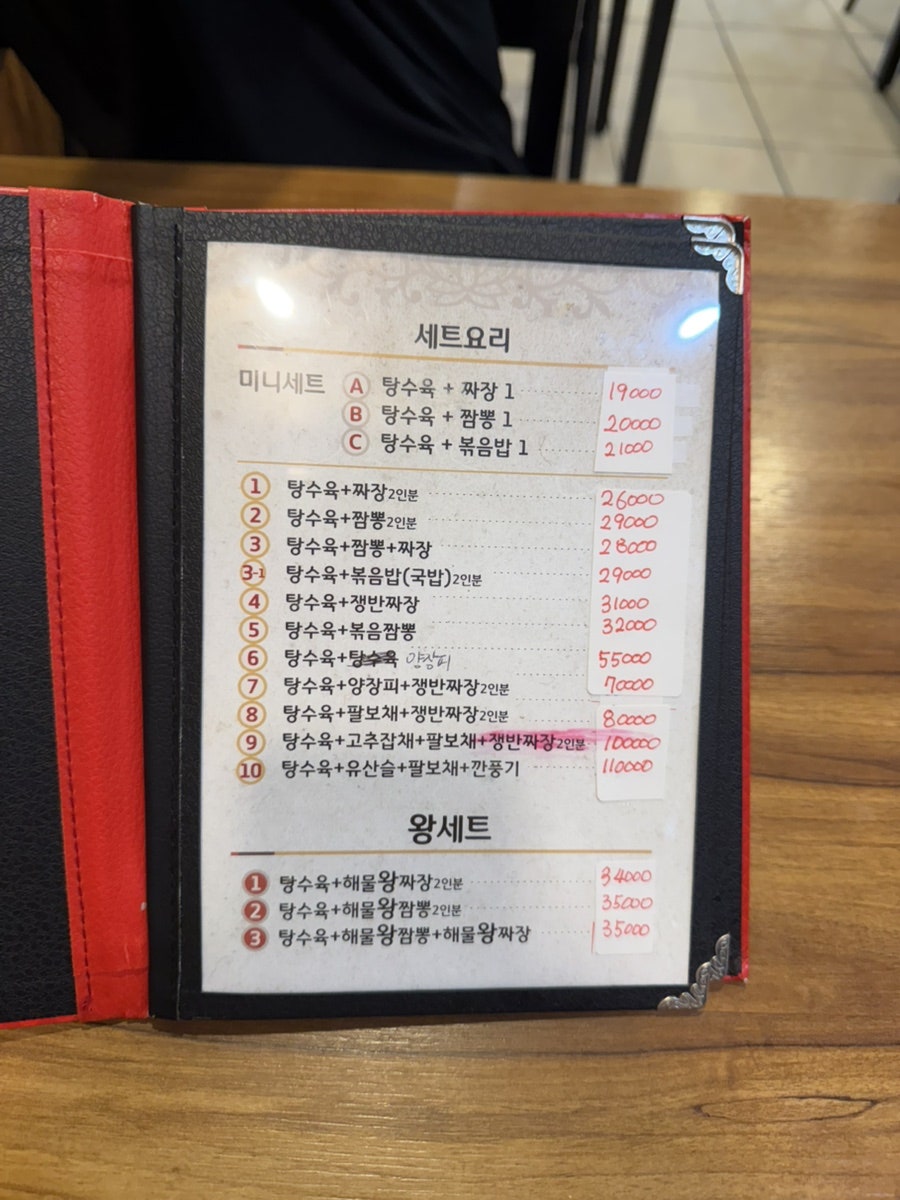 세트요리
미니세트 A 탕수육 + 짜장 1 19000
B 탕수육 + 짬뽕 1 20000
C 탕수육 + 볶음밥 1 21000
1 탕수육+짜장2인분 26000
2 탕수육+짬뽕2인분 29000
3 탕수육+짬뽕+짜장 28000
3-1 탕수육+볶음밥(국밥)2인분 29000
4 탕수육+쟁반짜장 31000
5 탕수육+볶음짬뽕 32000
6 탕수육+탕수육 양장피 55000
7 탕수육+양장피+쟁반짜장2인분 70000
8 탕수육+팔보채+쟁반짜장2인분 80000
9 탕수육+고추잡채+팔보채+쟁반짜장2인분 100000
10 탕수육+유산슬+팔보채+깐풍기 110000
왕세트
1 탕수육+해물왕짜장2인분 34000
2 탕수육+해물왕짬뽕2인분 35000
3 탕수육+해물왕짬뽕+해물왕짜장 35000